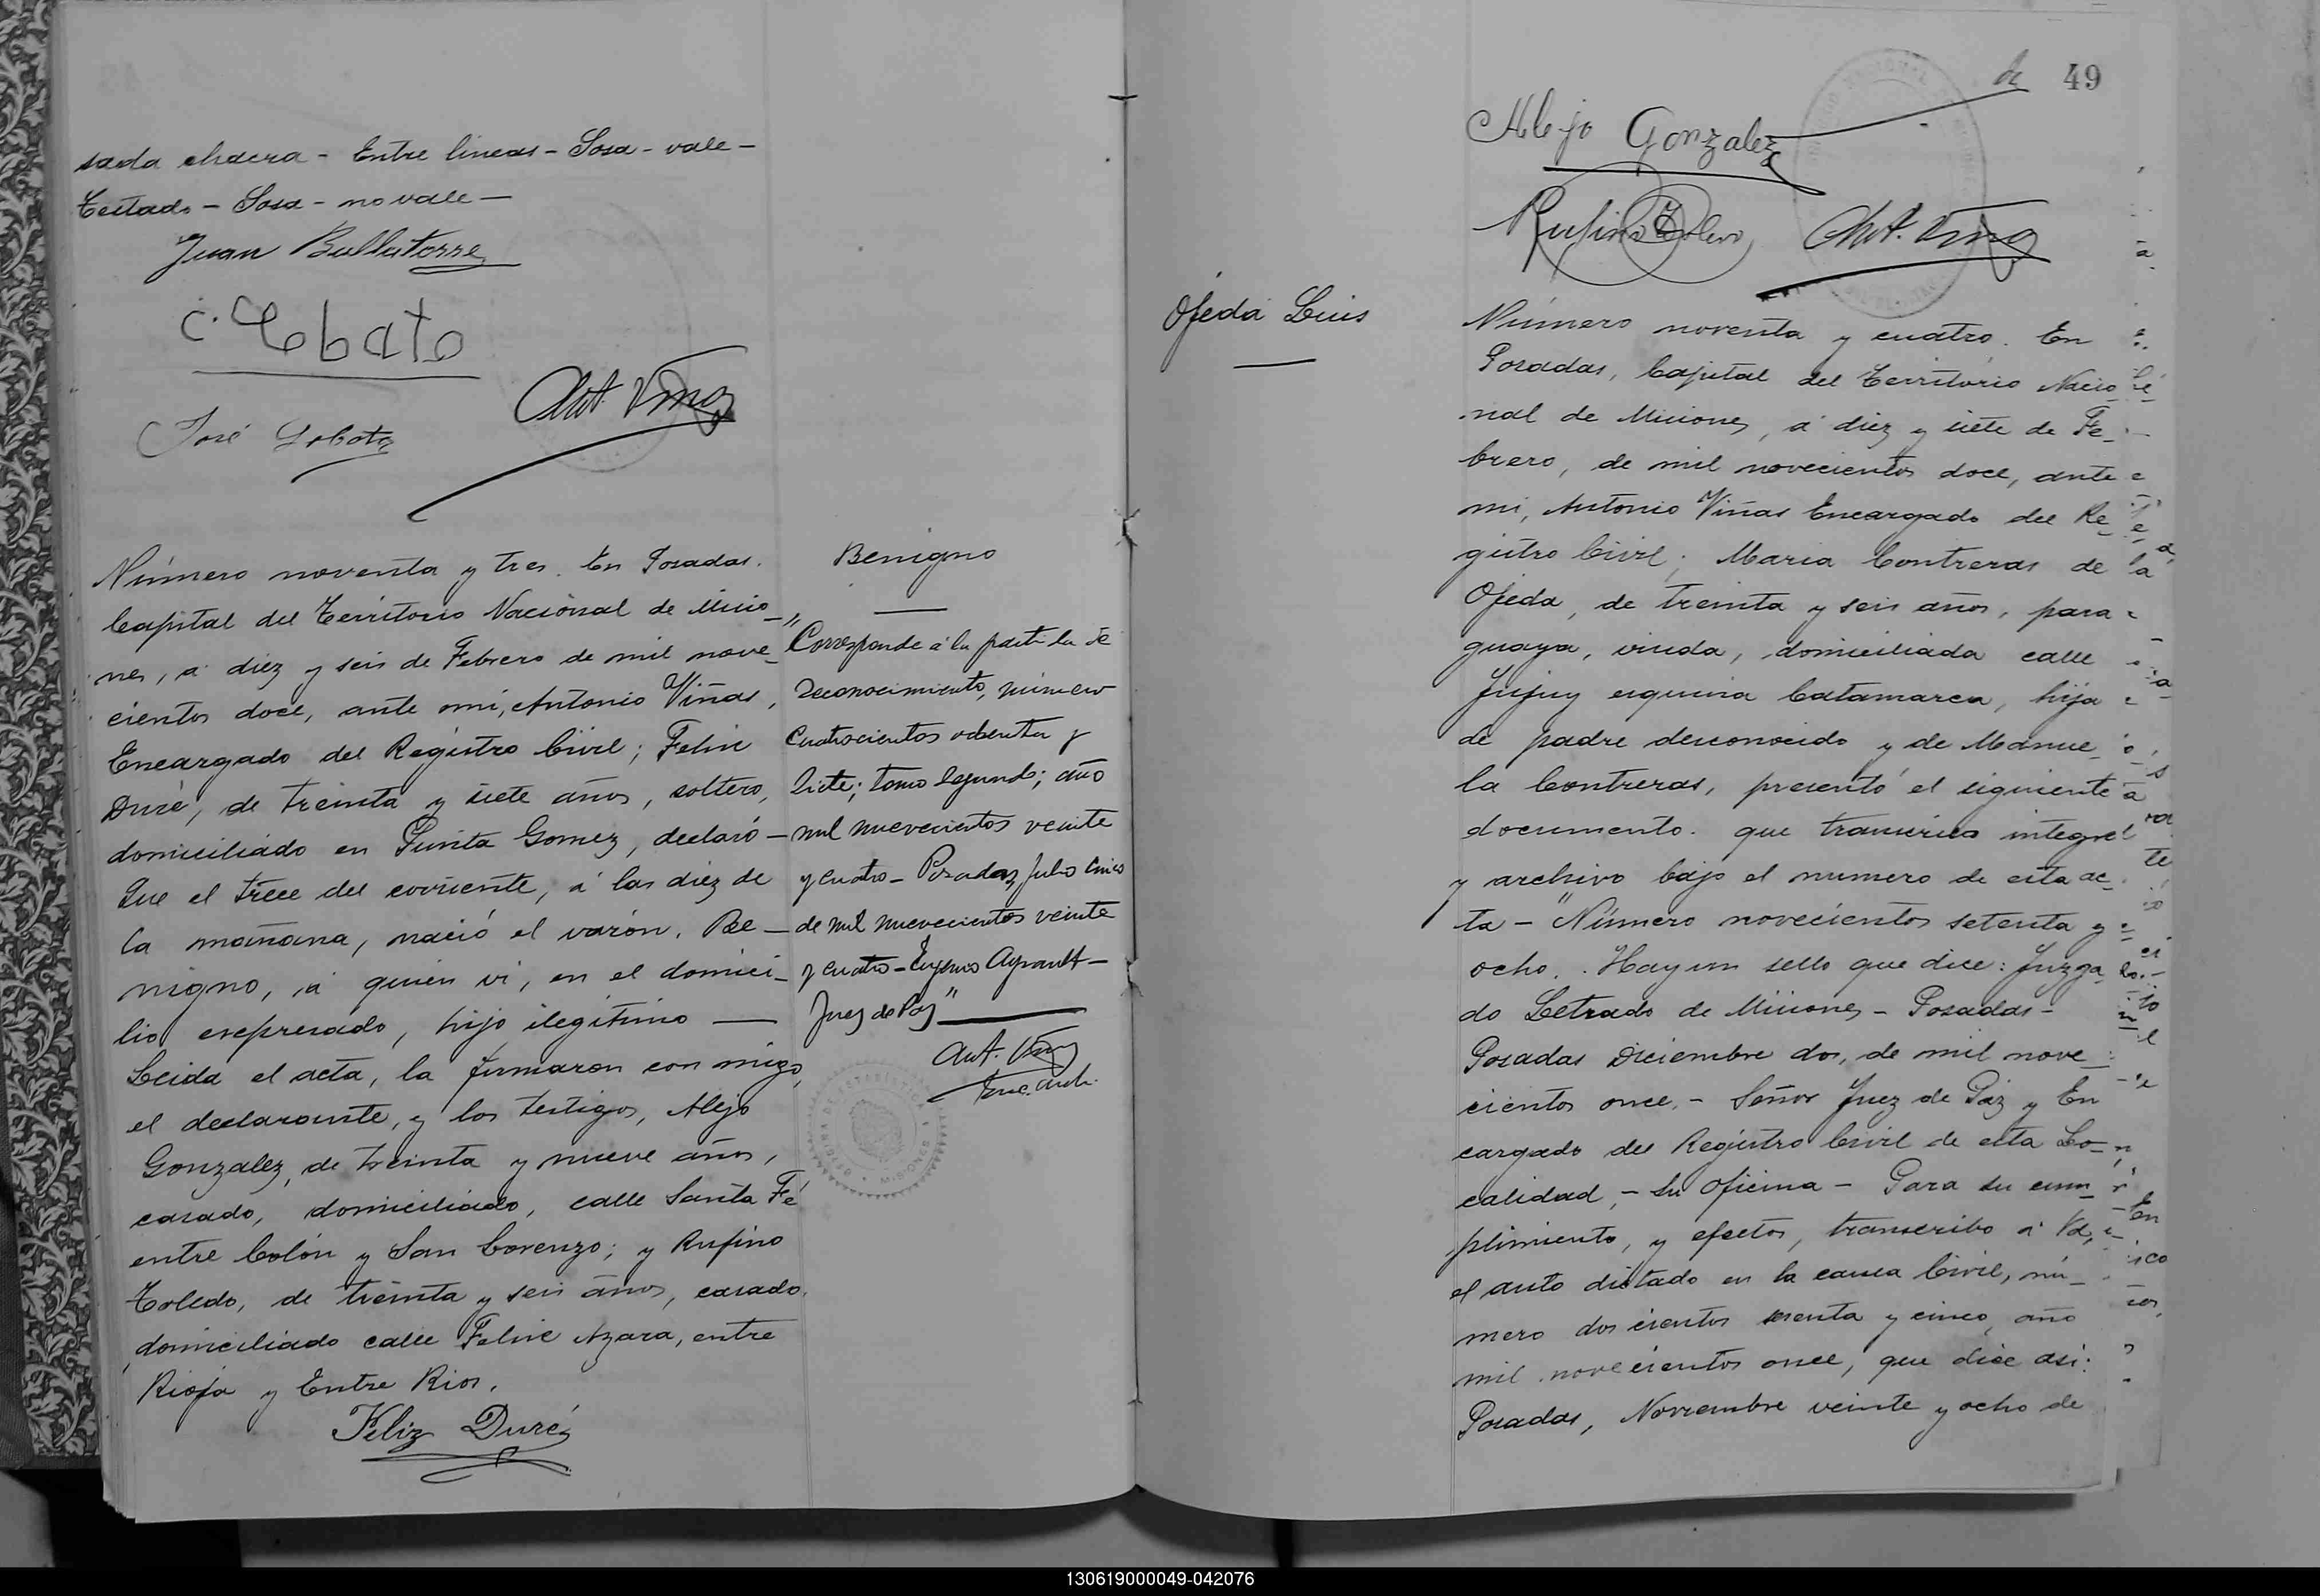 sada chacra - Entre lineas - Sosa - vale -
Testado - Sosa - no vale -
Juan Ballatorre
C. Lobato
Ant. Viñas
José Lobato
Número noventa y tres. En Posadas.
Capital del Territorio Nacional de Misio-
nes, a diez y seis de Febrero de mil nove-
cientos doce, ante mi, Antonio Viñas,
Encargado del Registro Civil; Felix
Duré, de treinta y siete años, soltero,
domiciliado en Punta Gomez, declaró -
Que el trece del corriente, á las diez de
la mañana, nació el varón. Be -
nigno, á quien vi, en el domici-
lio expresado, hijo ilegítimo —
Leida el acta, la firmaron con migo,
el declarante, y los testigos, Alejo
Gonzalez, de treinta y nueve años,
casado, domiciliado, calle Santa Fé
entre Colón y San Lorenzo; y Rufino
Toledo, de treinta y seis años, casado,
domiciliado calle Felix Azara, entre
Rioja y Entre Rios.
Feliz Duré
Benigno
"Corresponde á la partida de
reconocimiento, número
cuatrocientos ochenta y
siete; tomo segundo; año
mil nuevecientos veinte
y cuatro - Posadas, Julio cinco
de mil nuevecientos veinte
y cuatro - Eugenio Ayrault -
Juez de Paz"
Ant. Viñas
Enc. Arch.
49
Alejo Gonzalez
Rufino Toledo
Ant. Viñas
Ojeda Luis
Número noventa y cuatro. En
Posadas, Capital del Territorio Nacio-
nal de Misiones, á diez y siete de Fe-
brero, de mil novecientos doce, ante
mi, Antonio Viñas Encargado del Re-
gistro Civil; Maria Contreras de
Ojeda, de treinta y seis años, para-
guaya, viuda, domiciliada calle
Jujuy esquina Catamarca, hija
de padre desconocido y de Manue-
la Contreras, presentó el siguiente
documento. que transcribo integro
y archivo bajo el numero de esta ac-
ta - "Número novecientos setenta y
ocho. . Hay un sello que dice: Juzga-
do Letrado de Misiones - Posadas -
Posadas Diciembre dos, de mil nove
cientos once. - Señor Juez de Paz y En
cargado del Registro Civil de esta Lo-
calidad, - Su Oficina - Para su cum-
plimiento, y efectos, transcribo á Vd,
el auto dictado en la causa Civil, nú-
mero dos cientos sesenta y cinco, año
mil novecientos once, que dice asi:
Posadas, Noviembre veinte y ocho de
130619000049-042076